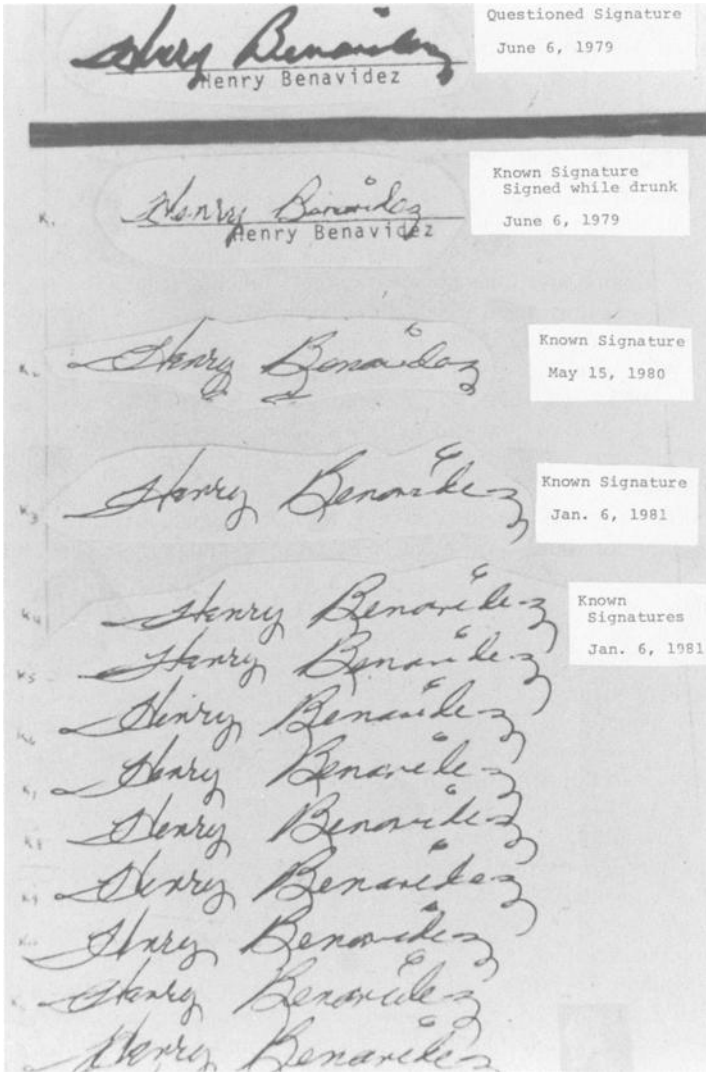 Questioned Signature
June 6, 1979
Henry Benavidez
Henry Benavidez
Known Signature
Signed while drunk
June 6, 1979
K1
Henry Benavidez
Henry Benavidez
Known Signature
May 15, 1980
K2
Henry Benavidez
Known Signature
Jan. 6, 1981
K3
Henry Benavidez
Known
Signatures
Jan. 6, 1981
K4
Henry Benavidez
K5
Henry Benavidez
K6
Henry Benavidez
K7
Henry Benavidez
K8
Henry Benavidez
K9
Henry Benavidez
Henry Benavidez
Henry Benavidez
Henry Benavidez